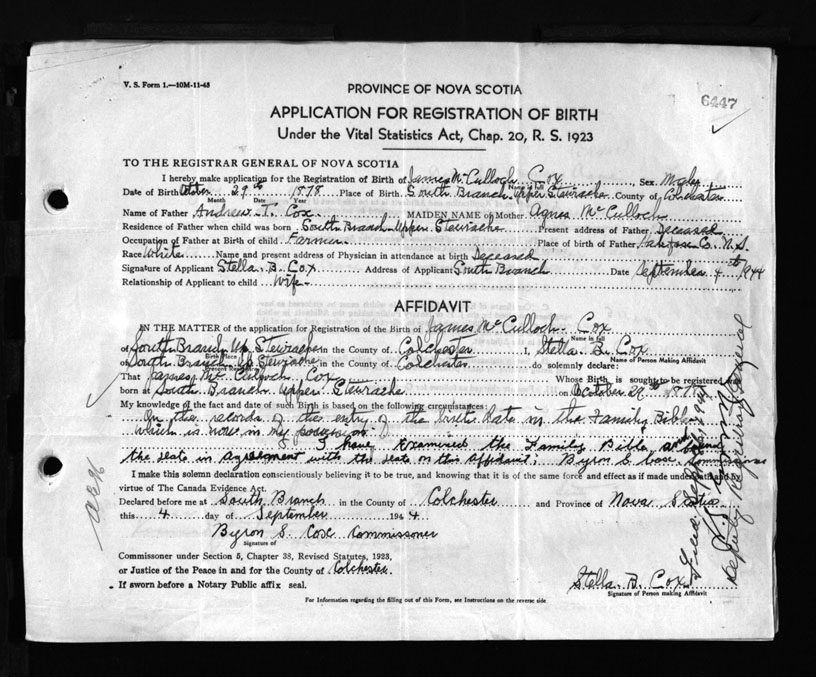 V. S. Form 1.—10M-11-43
PROVINCE OF NOVA SCOTIA
6447
APPLICATION FOR REGISTRATION OF BIRTH
Under the Vital Statistics Act, Chap. 20, R. S. 1923
TO THE REGISTRAR GENERAL OF NOVA SCOTIA
I hereby make application for the Registration of Birth of James McCulloch Cox, Sex Male
Name in full
Date of Birth 29th 1878 Place of Birth South Branch Upper Stewiacke County of Colchester
Month Date Year
Name of Father Andrew T. Cox MAIDEN NAME of Mother Agnes McCulloch
Residence of Father when child was born South Branch Upper Stewiacke Present address of Father Deceased
Occupation of Father at Birth of child Farmer Place of Birth of Father Co. N.S.
Race White Name and present address of Physician in attendance at birth Deceased
Signature of Applicant Stella B. Cox Address of Applicant South Branch Date September 4th 1944
Relationship of Applicant to child Wife
AFFIDAVIT
IN THE MATTER of the application for Registration of the Birth of James McCulloch Cox
Name in full
of South Branch Up. Stewiacke in the County of Colchester I, Stella B. Cox
Birth Place Name of Person Making Affidavit
of South Branch Up Stewiacke in the County of Colchester do solemnly declare:
Present Residence
That James McCulloch Cox Whose Birth is sought to be registered was
born at South Branch Upper Stewiacke on October 29th 1878
My knowledge of the fact and date of such Birth is based on the following circumstances:
On the records of the entry of the birth data in the Family Bible
which is now in my possession
I have examined the Family Bible and found
the date in agreement with the date on this affidavit, Byron S Cox Commissioner
I make this solemn declaration conscientiously believing it to be true, and knowing that it is of the same force and effect as if made under oath and by
virtue of The Canada Evidence Act.
Declared before me at South Branch in the County of Colchester and Province of Nova Scotia
this 4 day of September 1944
Byron S. Cox Commissioner
Signature of
Commissioner under Section 5, Chapter 38, Revised Statutes, 1923,
or Justice of the Peace in and for the County of Colchester.
If sworn before a Notary Public affix seal.
Stella B. Cox
Signature of Person making Affidavit
For Information regarding the filling out of this Form, see Instructions on the reverse side.
Deputy Registrar General